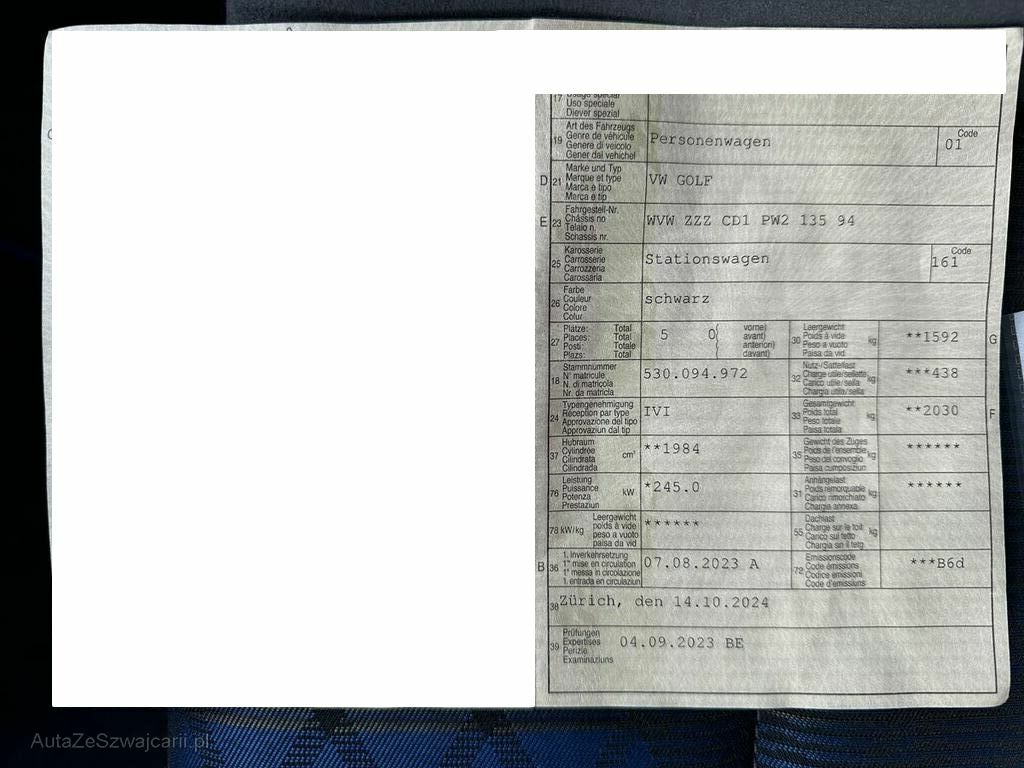 17
Uso speciale
Diever spezial
19
Art des Fahrzeugs
Genre de véhicule
Genere di veicolo
Gener dal vehichel
Personenwagen
Code
01
D
21
Marke und Typ
Marque et type
Marca e tipo
Marca e tip
VW GOLF
E
23
Fahrgestell-Nr.
Châssis no
Telaio n.
Schassis nr.
WVW ZZZ CD1 PW2 135 94
25
Karosserie
Carrosserie
Carrozzeria
Carossaria
Stationswagen
Code
161
26
Farbe
Couleur
Colore
Colur
schwarz
27
Plätze: Total
Places: Total
Posti: Totale
Plazs: Total
5 0(
vorne)
avant)
anteriori)
davant)
30
Leergewicht
Poids à vide
Peso a vuoto
Paisa da vid
kg
**1592
G
18
Stammnummer
N° matricule
N. di matricola
Nr. da matricla
530.094.972
32
Nutz-/Sattellast
Charge utile/sellette
Carico utile/sella
Chargia utila/sella
kg
***438
24
Typengenehmigung
Réception par type
Approvazione del tipo
Approvaziun dal tip
IVI
33
Gesamtgewicht
Poids total
Peso totale
Paisa totala
kg
**2030
F
37
Hubraum
Cylindrée
Cilindrata
Cilindrada
cm³
**1984
35
Gewicht des Zuges
Poids de l'ensemble
Peso del convoglio
Paisa cumposiziun
kg
******
76
Leistung
Puissance
Potenza
Prestaziun
kW
*245.0
31
Anhängelast
Poids remorquable
Carico rimorchiato
Chargia annexa
kg
******
78 kW/kg
Leergewicht
poids à vide
peso a vuoto
paisa da vid
******
55
Dachlast
Charge sur le toit
Carico sul tetto
Chargia sin il tetg
kg
B
36
1. Inverkehrsetzung
1re mise en circulation
1a messa in circolazione
1. entrada en circulaziun
07.08.2023 A
72
Emissionscode
Code émissions
Codice emissioni
Code d'emissiuns
***B6d
38
Zürich, den 14.10.2024
39
Prüfungen
Expertises
Perizie
Examinaziuns
04.09.2023 BE
AutaZeSzwajcarii.pl